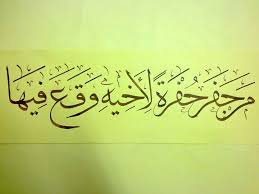 مَن حَفَرَ حُفْرَةً لِأَخِيهِ وَقَعَ فِيهَا